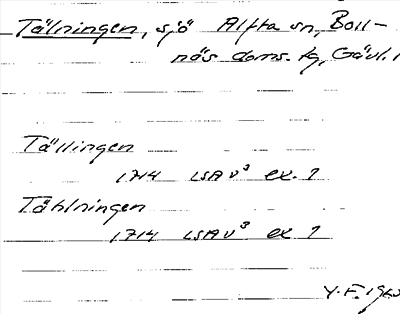 Tälningen, sjö Alfta sn, Boll-
näs doms. tg, Gävl. l
Tällingen
1714 LSA V³ ex. 1
Tählningen
1714 LSA V³ ex 1
Y. F. 196